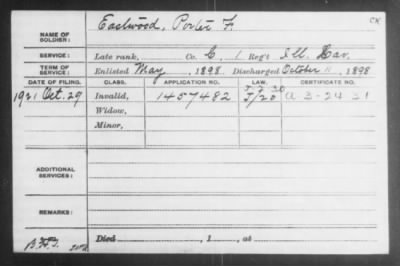 CK
NAME OF SOLDIER: Eastwood, Porter F.
SERVICE: Late rank, Co. C, 1 Reg't Ill. Cav.
TERM OF SERVICE: Enlisted May , 1898 Discharged October 11 , 1898
DATE OF FILING. CLASS. APPLICATION NO. LAW.
1921 Oct. 29 Invalid, 1457482 J/20 a 3-24 21
Widow,
Minor,
ADDITIONAL SERVICES:
REMARKS:
Died , 1 , at